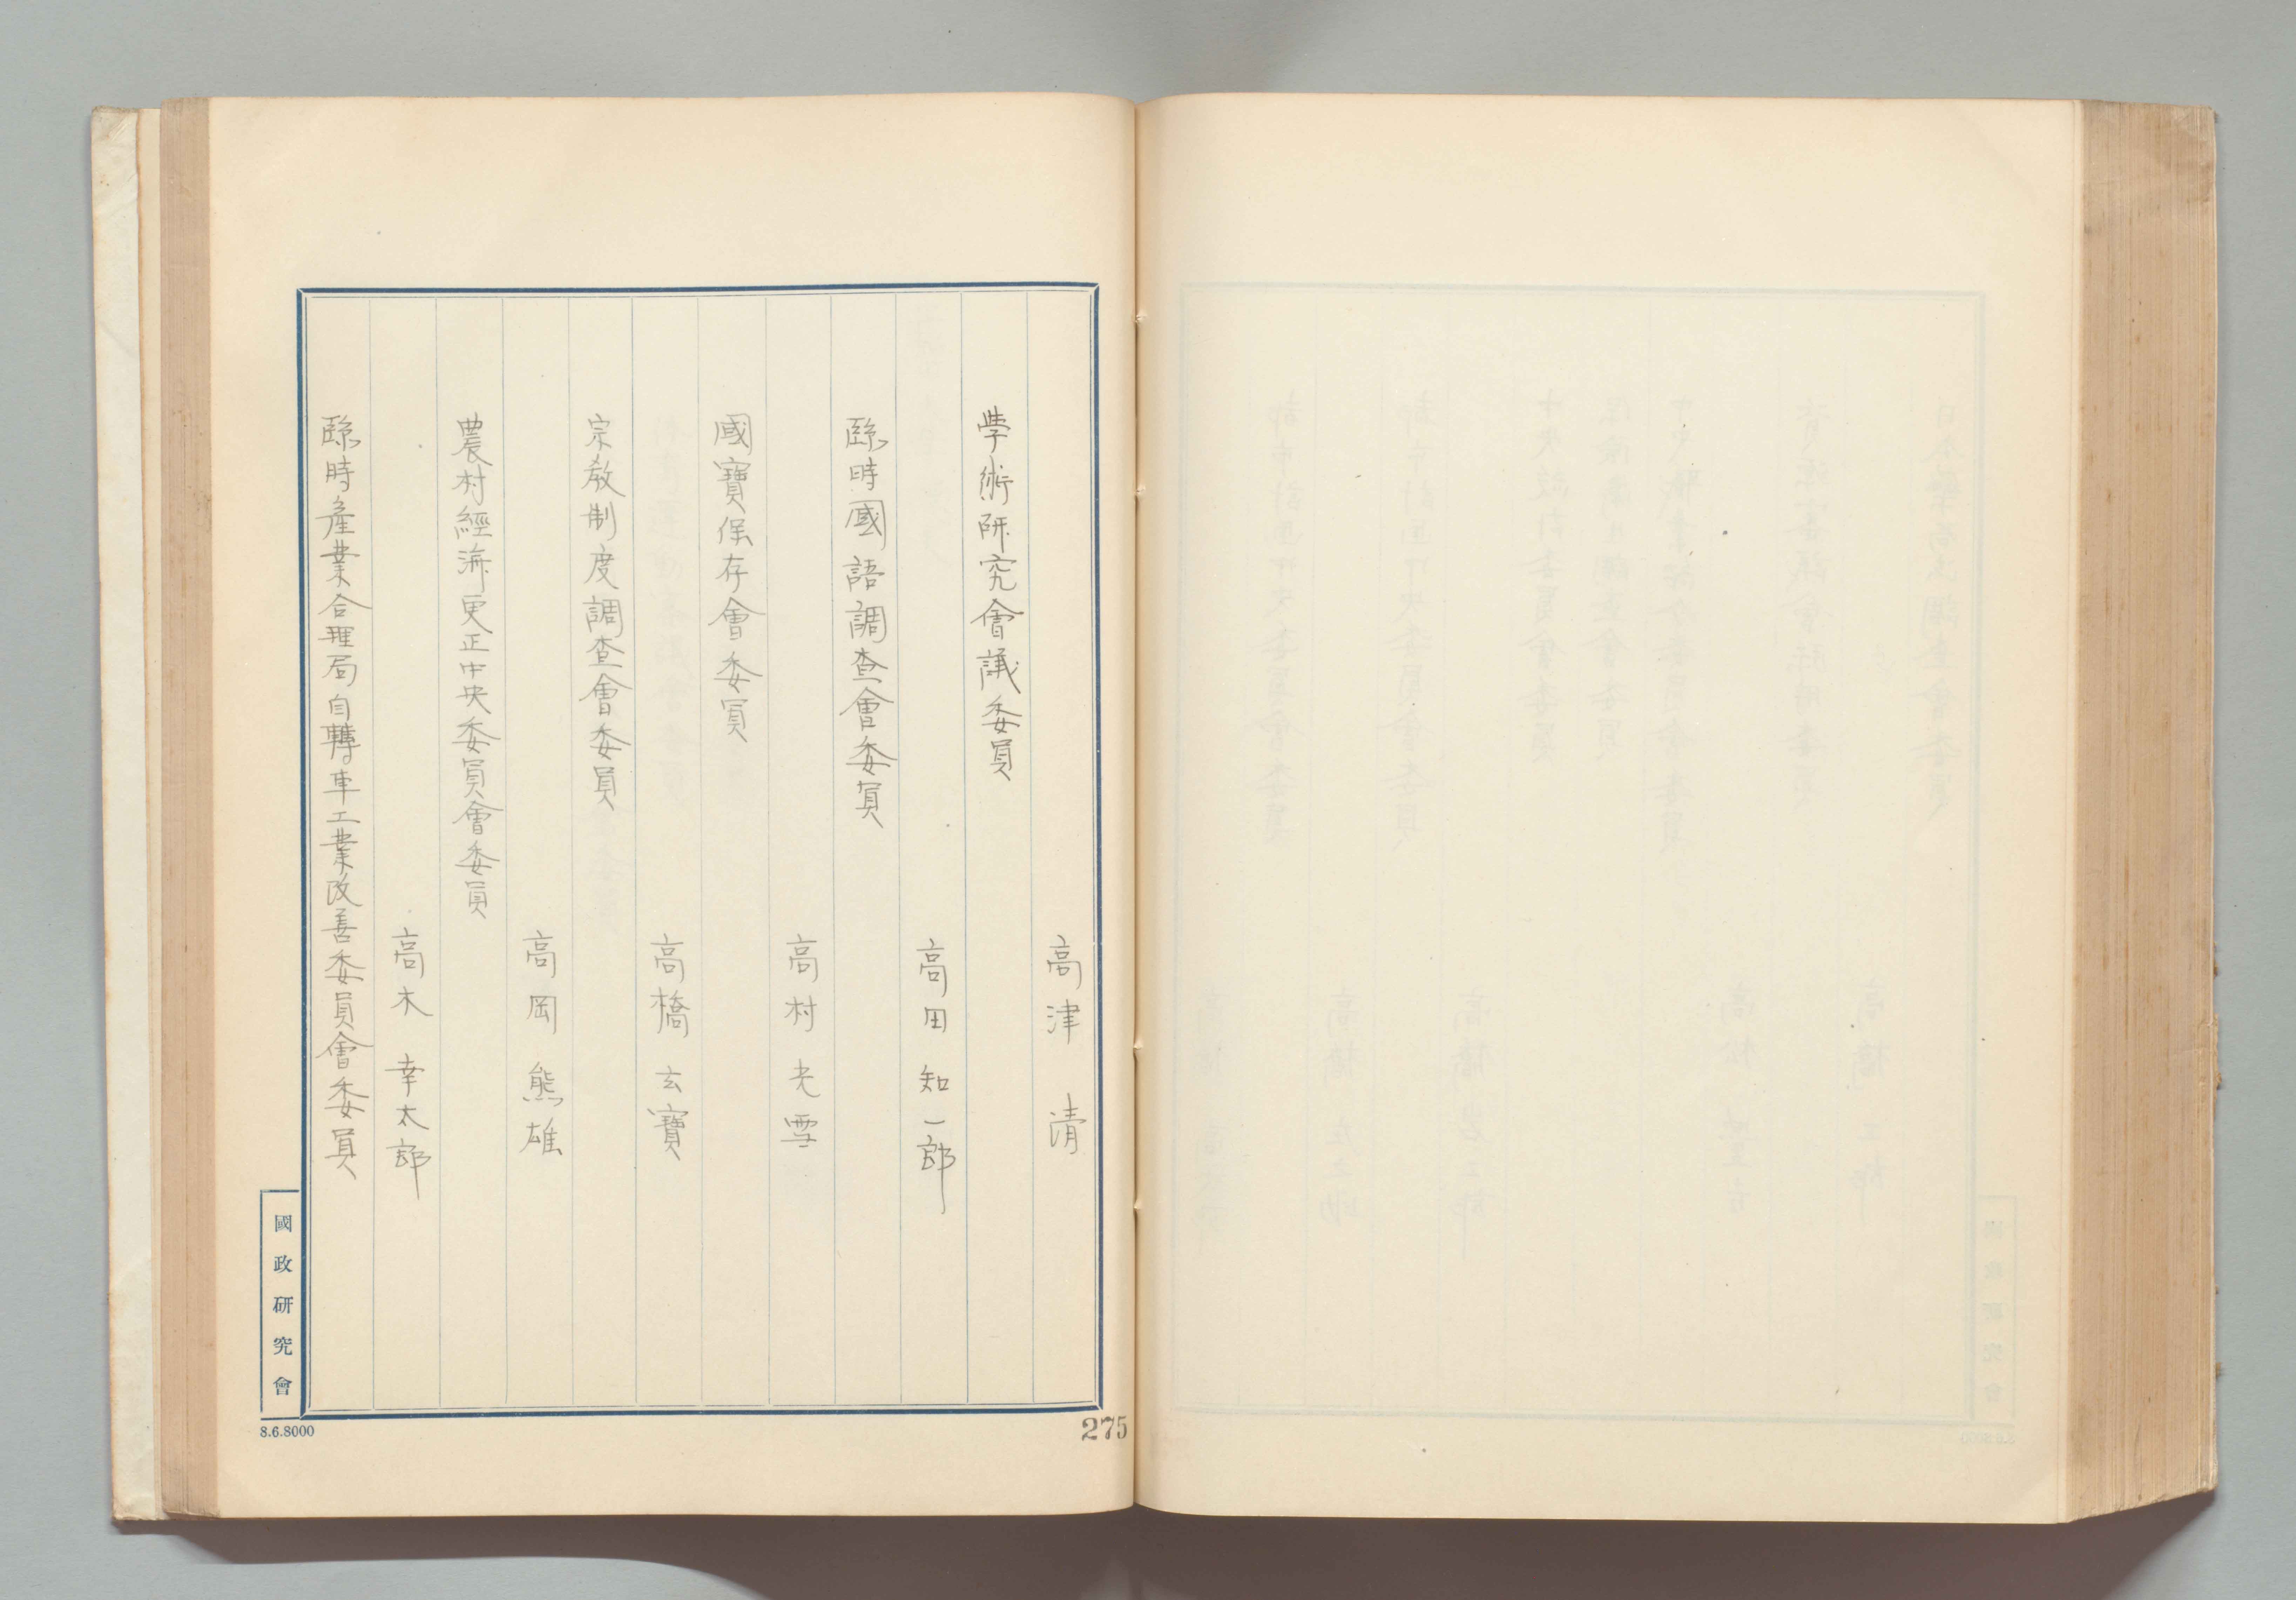 高津清
學術研究會議委員
高田知一郎
臨時國語調査會委員
高村光雲
國寶保存會委員
高橋玄寶
宗教制度調査會委員
高岡熊雄
農村經濟更正中央委員會委員
高木幸太郎
臨時產業合理局自轉車工業改善委員會委員
國政研究會
8.6.8000
275